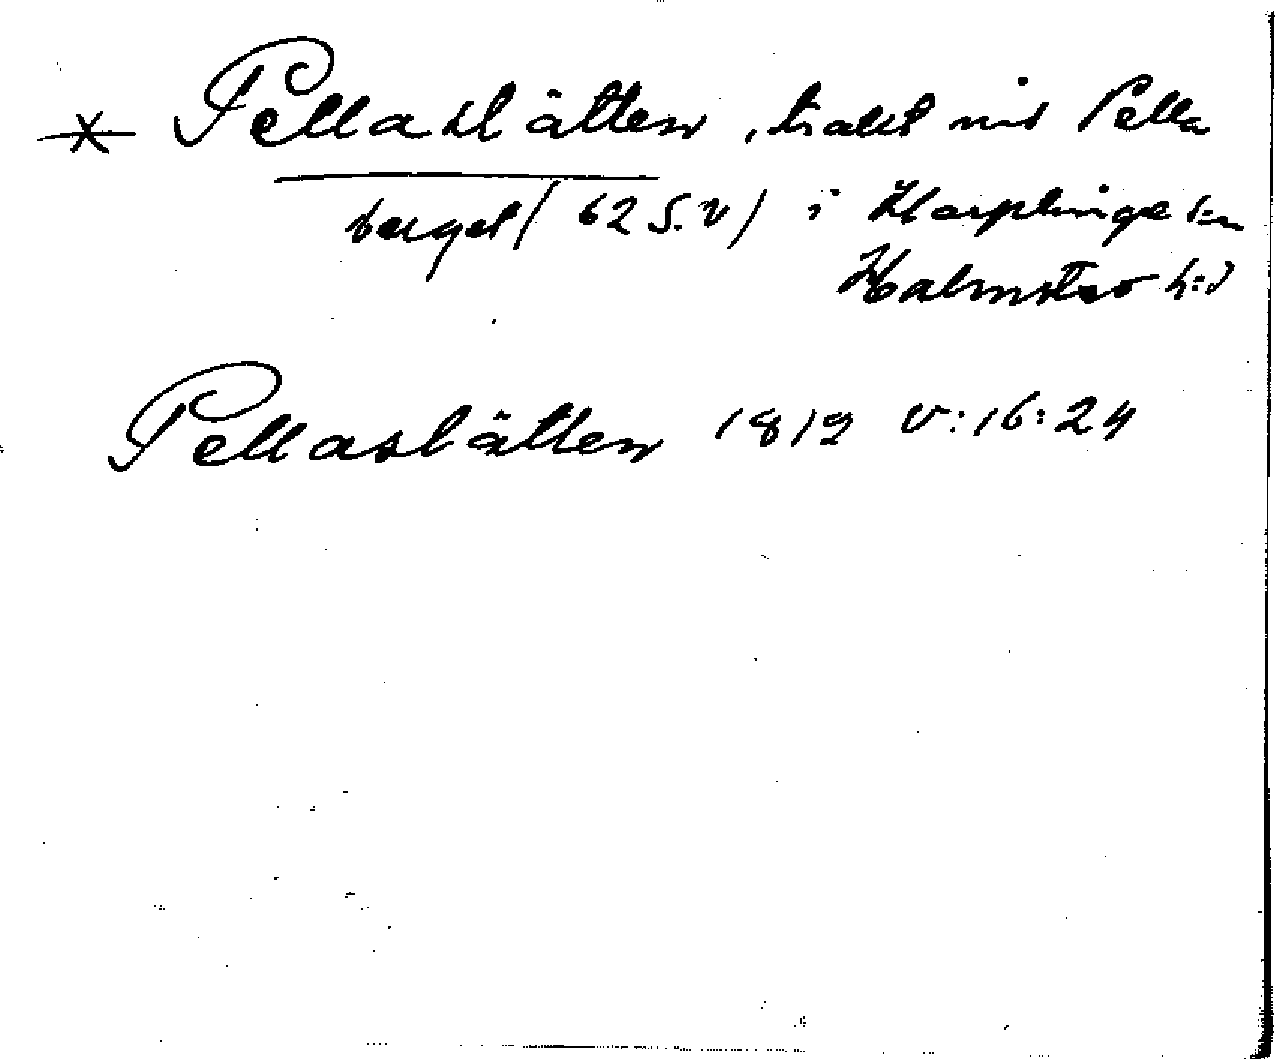 * Pellaslätten, trakt vid Pella
berget (62 S.V) i Harplinge s:n
Halmstad h:d
Pellaslätten 1812 V:16:24